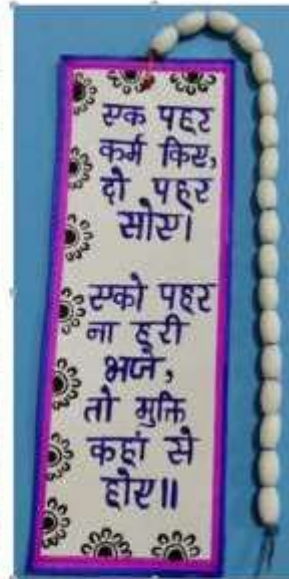 एक पहर
कर्म किए,
दो पहर
सोए।
एको पहर
ना हरी
भजे,
तो मुक्ति
कहां से
होए॥